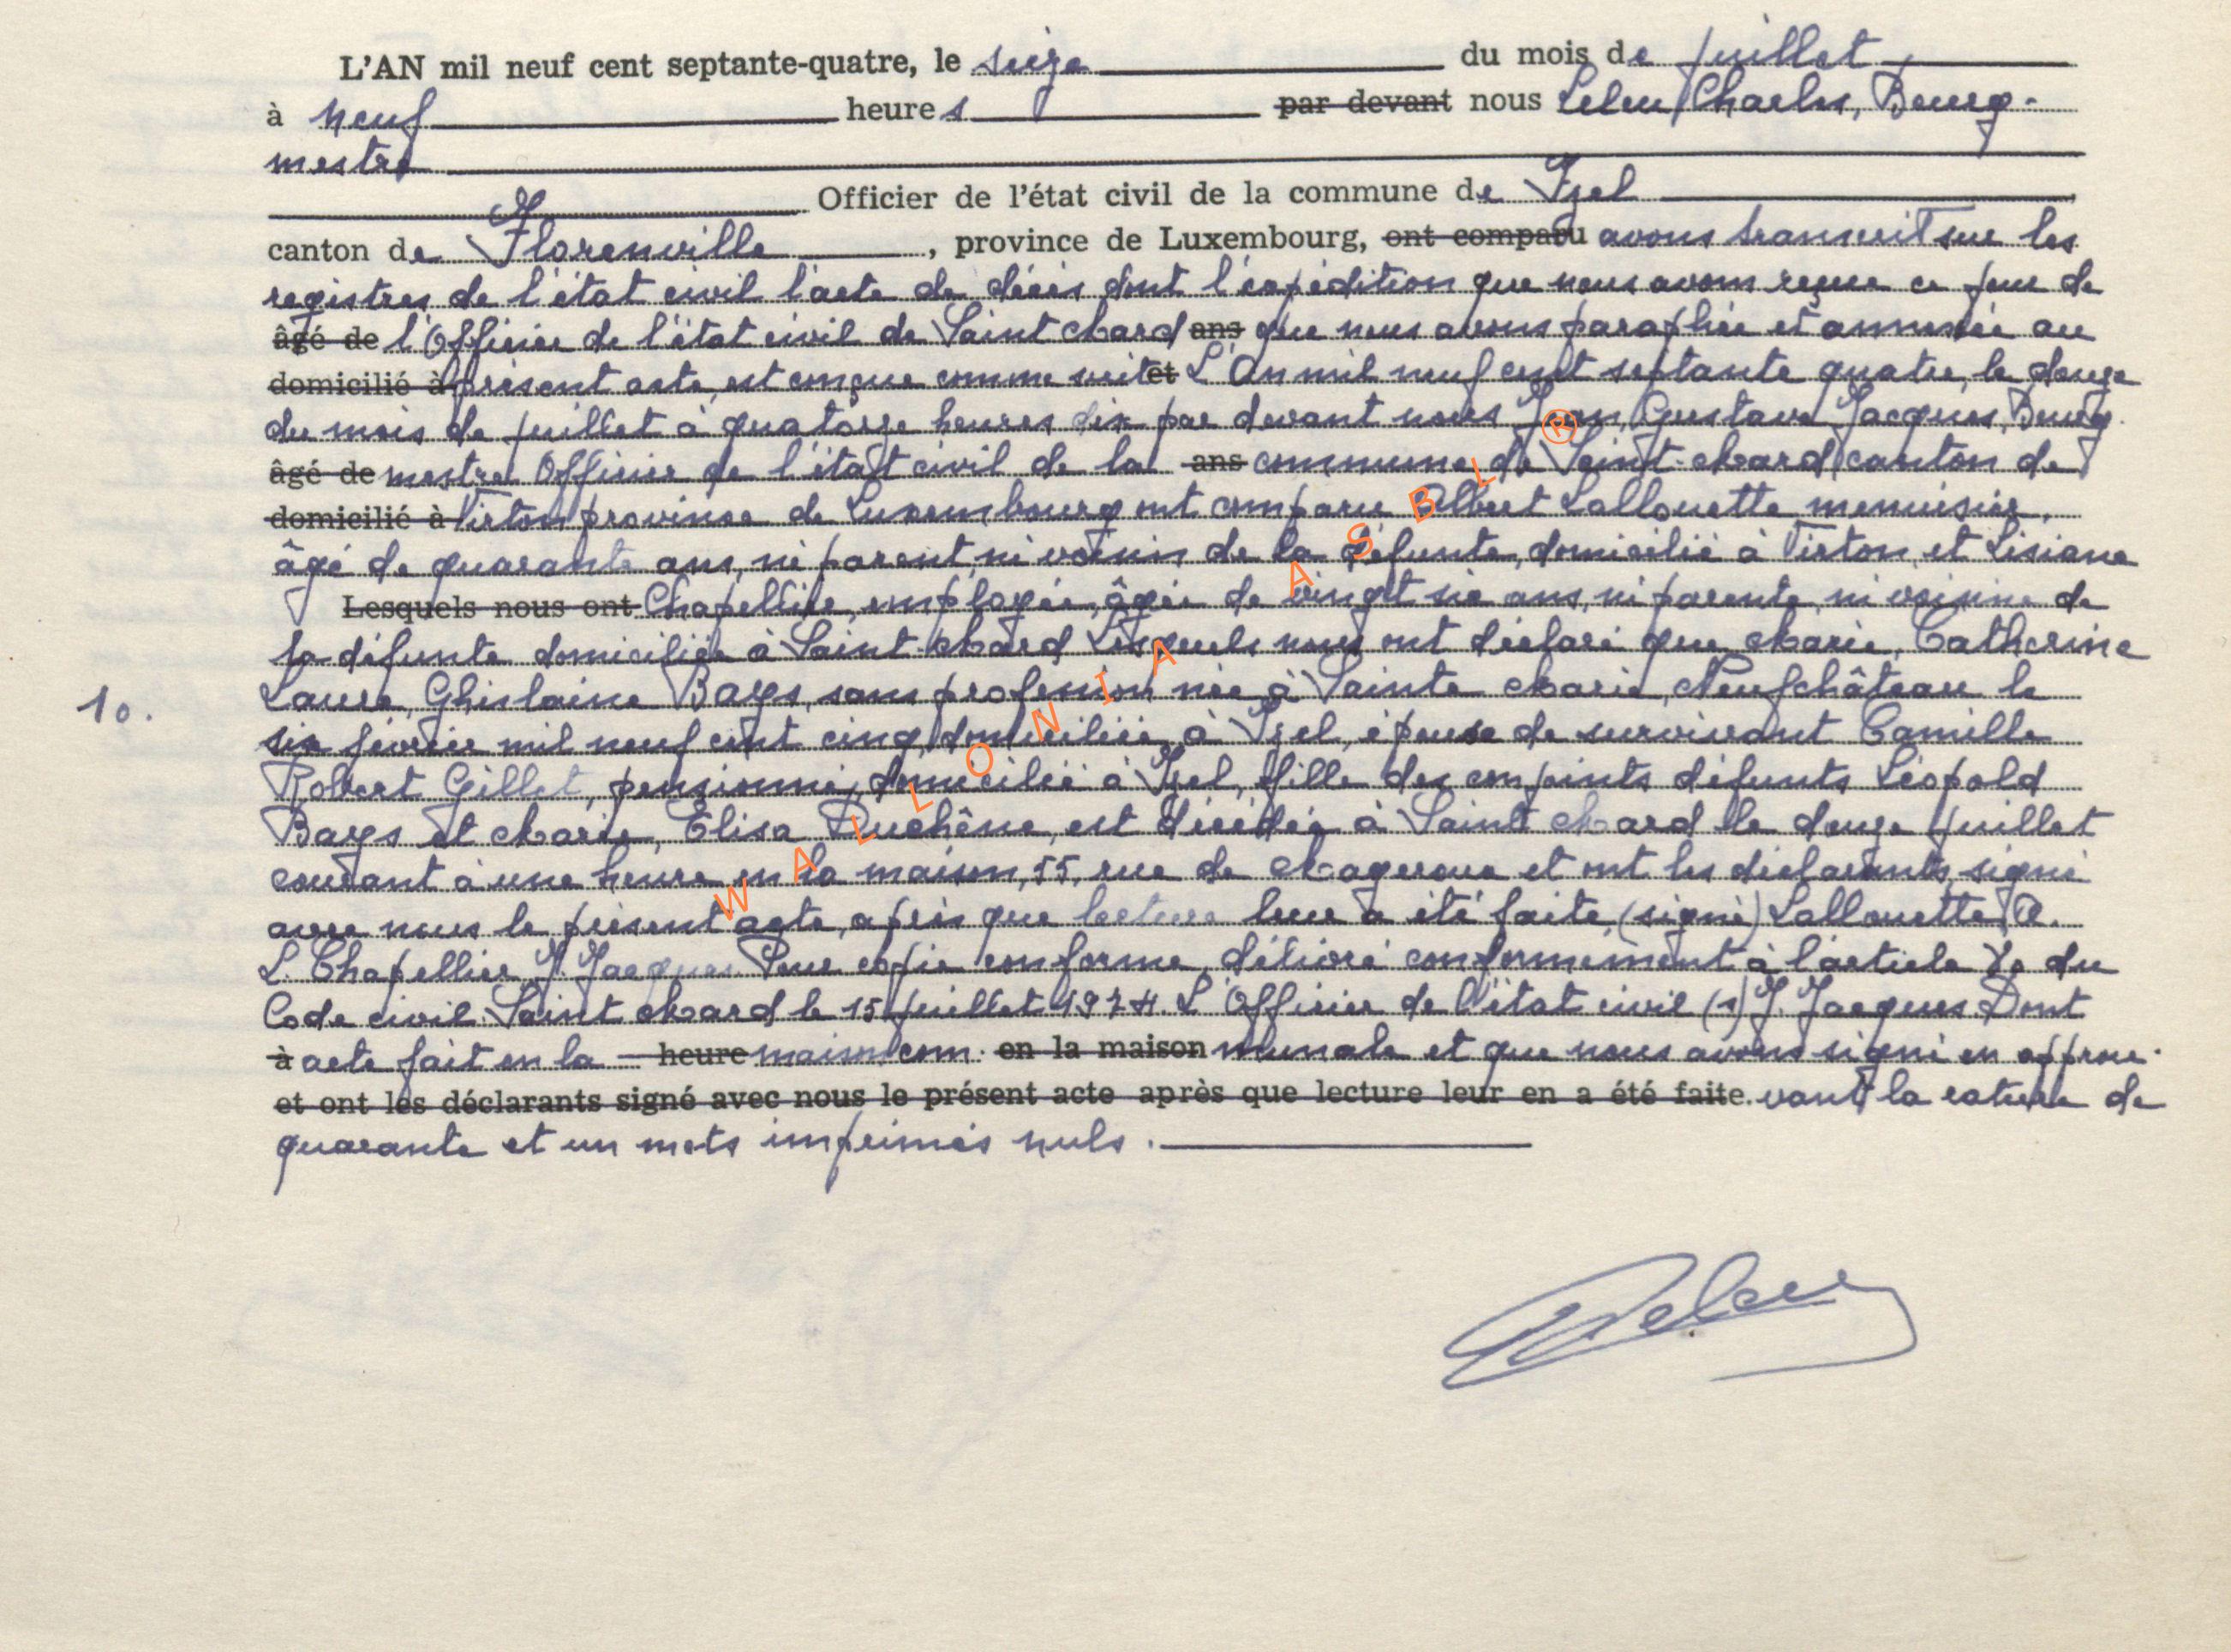 L'AN mil neuf cent septante-quatre, le seize du mois de juillet,
à neuf heures par devant nous Leleu Charles, Bourg-
mestre
Officier de l'état civil de la commune de Izel
canton de Florenville, province de Luxembourg, ont comparu avons transcrit sur les
registres de l'état civil l'acte de décès dont l'expédition que nous avons reçue ce jour de
âgé de l'Officier de l'état civil de Saint Mard ans que nous avons paraphée et annexée au
domicilié à présent acte, est conçue comme suit et L'An mil neuf cent septante quatre, le douze
du mois de juillet à quatorze heures dix par devant nous Jean, Gustave Jacques, Bourg-
âgé de mestre Officier de l'état civil de la ans commune de Saint-Mard canton de
domicilié à Virton province de Luxembourg ont comparu Albert Lallouette menuisier,
âgé de quarante ans, ni parent, ni voisin de la défunte, domicilié à Virton, et Lisiane
Lesquels nous ont Chapellier, employée, âgée de vingt six ans, ni parente, ni voisine de
la défunte domiciliée à Saint-Mard Lesquels nous ont déclaré que Marie, Catherine
10. Laure, Ghislaine Bays, sans profession née à Sainte Marie, Neufchâteau le
six février mil neuf cent cinq, domiciliée à Izel, épouse de survivant Camille
Robert Gillet, pensionné, domicilié à Izel, fille des conjoints défunts Léopold
Bays et Marie, Elisa Duchêne, est décédée à Saint Mard le douze juillet
courant à une heure en la maison, 55, rue de Mageroux et ont les déclarants, signé
avec nous le présent acte, après que lecture leur a été faite, (signé) Lallouette A.
L. Chapellier J. Jacques. Pour copie conforme, délivré conformément à l'article 80 du
Code civil. Saint Mard le 15 juillet 1974. L'Officier de l'état civil (s) J. Jacques Dont
à acte fait en la heure maison com- en la maison munale et que nous avons signé en approu-
et ont les déclarants signé avec nous le présent acte après que lecture leur en a été faite. vant la rature de
quarante et un mots imprimés nuls.
Leleu
WALLONIA ASBL ®